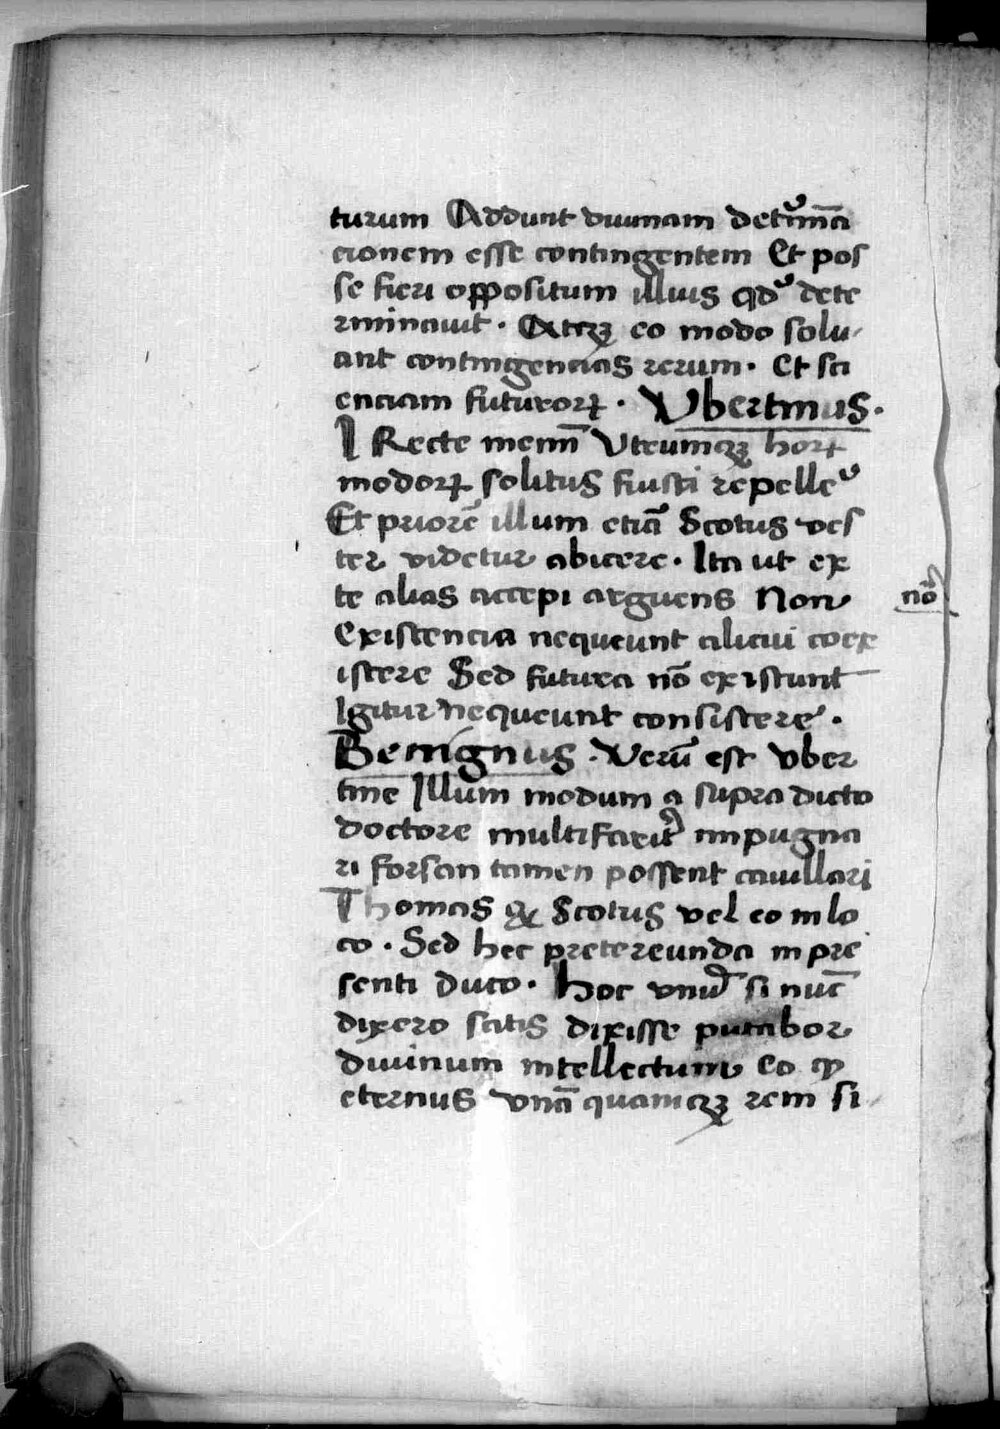 turum Addunt diuinam detᵉminā
cionem esse contingentem Et pos
se fieri oppositum illius qdᵉ dete
rminauit · Atqꝫ eo modo solu-
ant contingencias rerum · Et sci
enciam futuroꝝ · Vbertinus ·
I Recte memī Vtrumqꝫ hoꝝ
modoꝝ solitus fuisti repelleᵉ
Et priorē illum etiā Scotus ves
ter videtur abicere · Ita ut ex
te alias accepi arguens Non
Existencia nequeunt alicui coex
istere Sed futura nō existunt
Igitur nequeunt consistere ·
Benignus · Verū est Vber
tine Illum modum a supra dicto
doctore multifarit᾽ impugna
ri forsan tamen possent cauillari
Thomas Scotus vel eo in lo
co · Sed hec pretereunda in pre
senti duco · Hoc vnū si nūc
dixero satis dixisse putabor
diuinum intellectum Eo ꝙ
eternus vnā quamqꝫ rem si-
nō